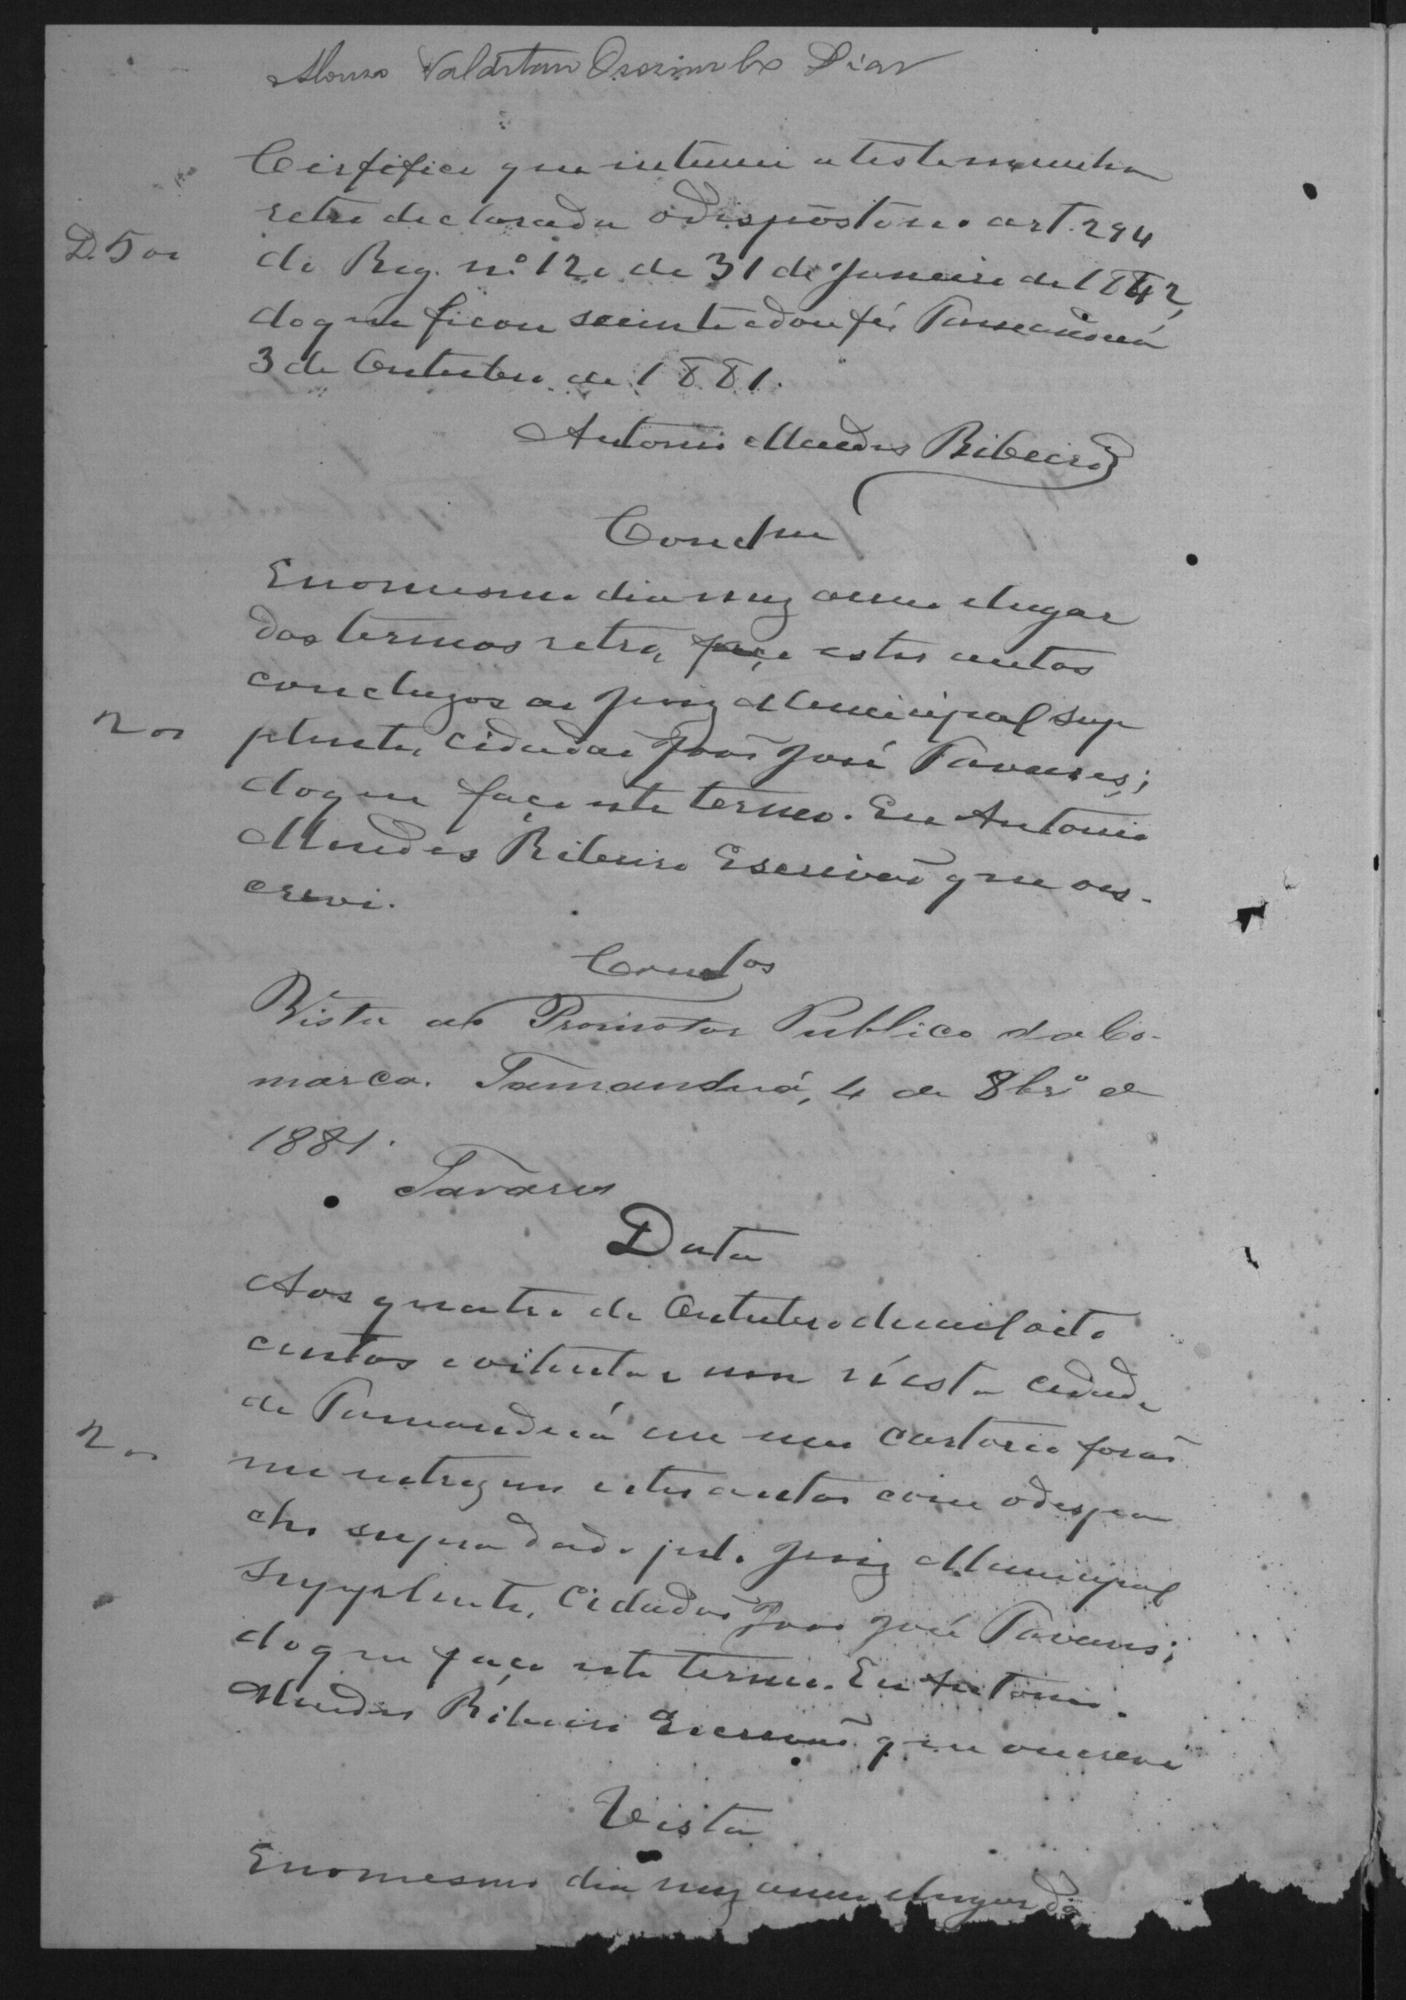 Dias
Certifico que intimei a testemunha
retro declarada o disposto no art. 294
D. 500
do Reg. nº 120 de 31 de Janeiro de 1842,
do que ficou sciente e dou fé. Tamanduá
3 de Outubro de 1881.
Antonio Mendes Ribeiro
Conclm
E no mesmo dia mez anno e lugar
dos termos retro, faço estes autos
concluzos ao Juiz Municipal sup
200
plente, cidadão João José Tavares;
do que faço este termo. Eu Antonio
Mendes Ribeiro Escrivão que o es-
crevi.
Conclos
Vista ao Promotor Publico da Co-
marca. Tamanduá, 4 de 8brº de
1881.
Tavares
Data
Aos quatro de Outubro de mil oito
centos e oitenta e um n'esta cidade
de Tamanduá em meu cartorio forão
200
me entregues estes autos com o despa
cho supra dado pelo Juiz Municipal
Supplente, Cidadão João José Tavares;
do que faço este termo. Eu Antonio
Mendes Ribeiro Escrivão que o escrevi
Vista
E no mesmo dia mez anno e lugar do